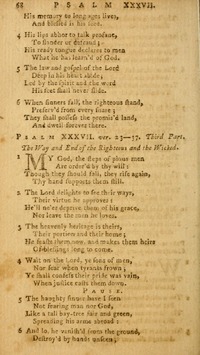 68 P S A L M XXXVII.
His mem'ry to long ages lives,
And blessed is his seed.
4 His lips abhor to talk profane,
To slander or defraud;
His ready tongue declares to men
What he has learn'd of God.
5 The law and gospel of the Lord
Deep in his heart abide;
Led by the spirit and the word
His feet shall never slide.
6 When sinners fall, the righteous stand,
Preserv'd from every snare;
They shall possess the promis'd land,
And dwell forever there.
P S A L M XXXVII. ver. 23—37. Third Part.
The Way and End of the Righteous and the Wicked.
1 MY God, the steps of pious men
Are order'd by thy will;
Though they should fall, they rise again,
Thy hand supports them still.
2 The Lord delights to see their ways,
Their virtue he approves;
He'll ne'er deprive them of his grace,
Nor leave the men he loves.
3 The heavenly heritage is theirs,
Their portion and their home;
He feeds them now, and makes them heirs
Of blessings long to come.
4 Wait on the Lord, ye sons of men,
Nor fear when tyrants frown;
Ye shall confess their pride was vain,
When justice casts them down.
P A U S E.
5 The haughty sinner have I seen
Not fearing man nor God,
Like a tall bay-tree fair and green,
Spreading his arms abroad:
6 And lo, he vanish'd from the ground,
Destroy'd by hands unseen;